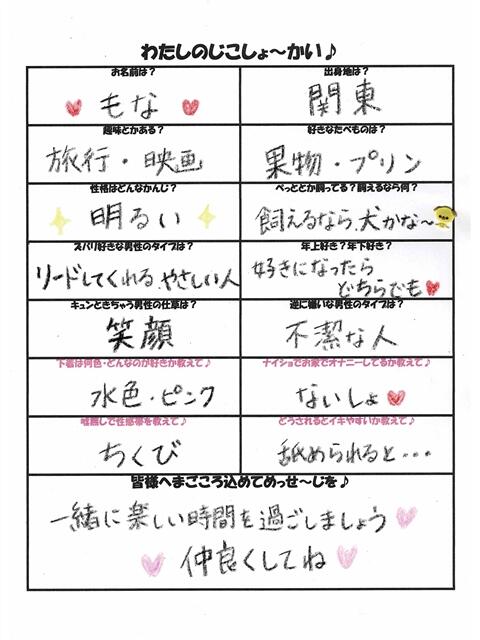 わたしのじこしょ〜かい♪
お名前は？
もな
出身地は？
関東
趣味とかある？
旅行・映画
好きなたべものは？
果物・プリン
性格はどんなかんじ？
明るい
ぺっととか飼ってる？飼えるなら何？
飼えるなら、犬かな〜
ズバリ好きな男性のタイプは？
リードしてくれる やさしい人
年上好き？年下好き？
好きになったら
どちらでも
キュンときちゃう男性の仕草は？
笑顔
逆に嫌いな男性のタイプは？
不潔な人
下着は何色・どんなのが好きか教えて♪
水色・ピンク
ナイショでお家でオナニーしてるか教えて♪
ないしょ
嘘無しで性感帯を教えて♪
ちくび
どうされるとイキやすいか教えて♪
舐められると・・・
皆様へまごころ込めてめっせ〜じを♪
一緒に楽しい時間を過ごしましょう
仲良くしてね